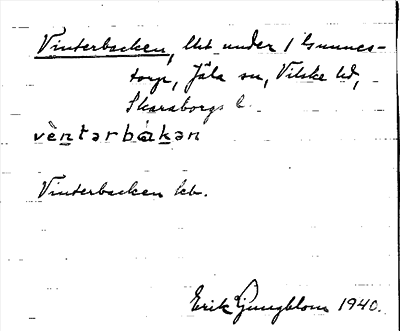 Vinterbacken, lht under 1 Gunnes-
torp, Jäla sn, Vilske hd,
Skaraborgs l.
vèntərbákən
Vinterbacken kb.
Erik Ljungblom 1940.